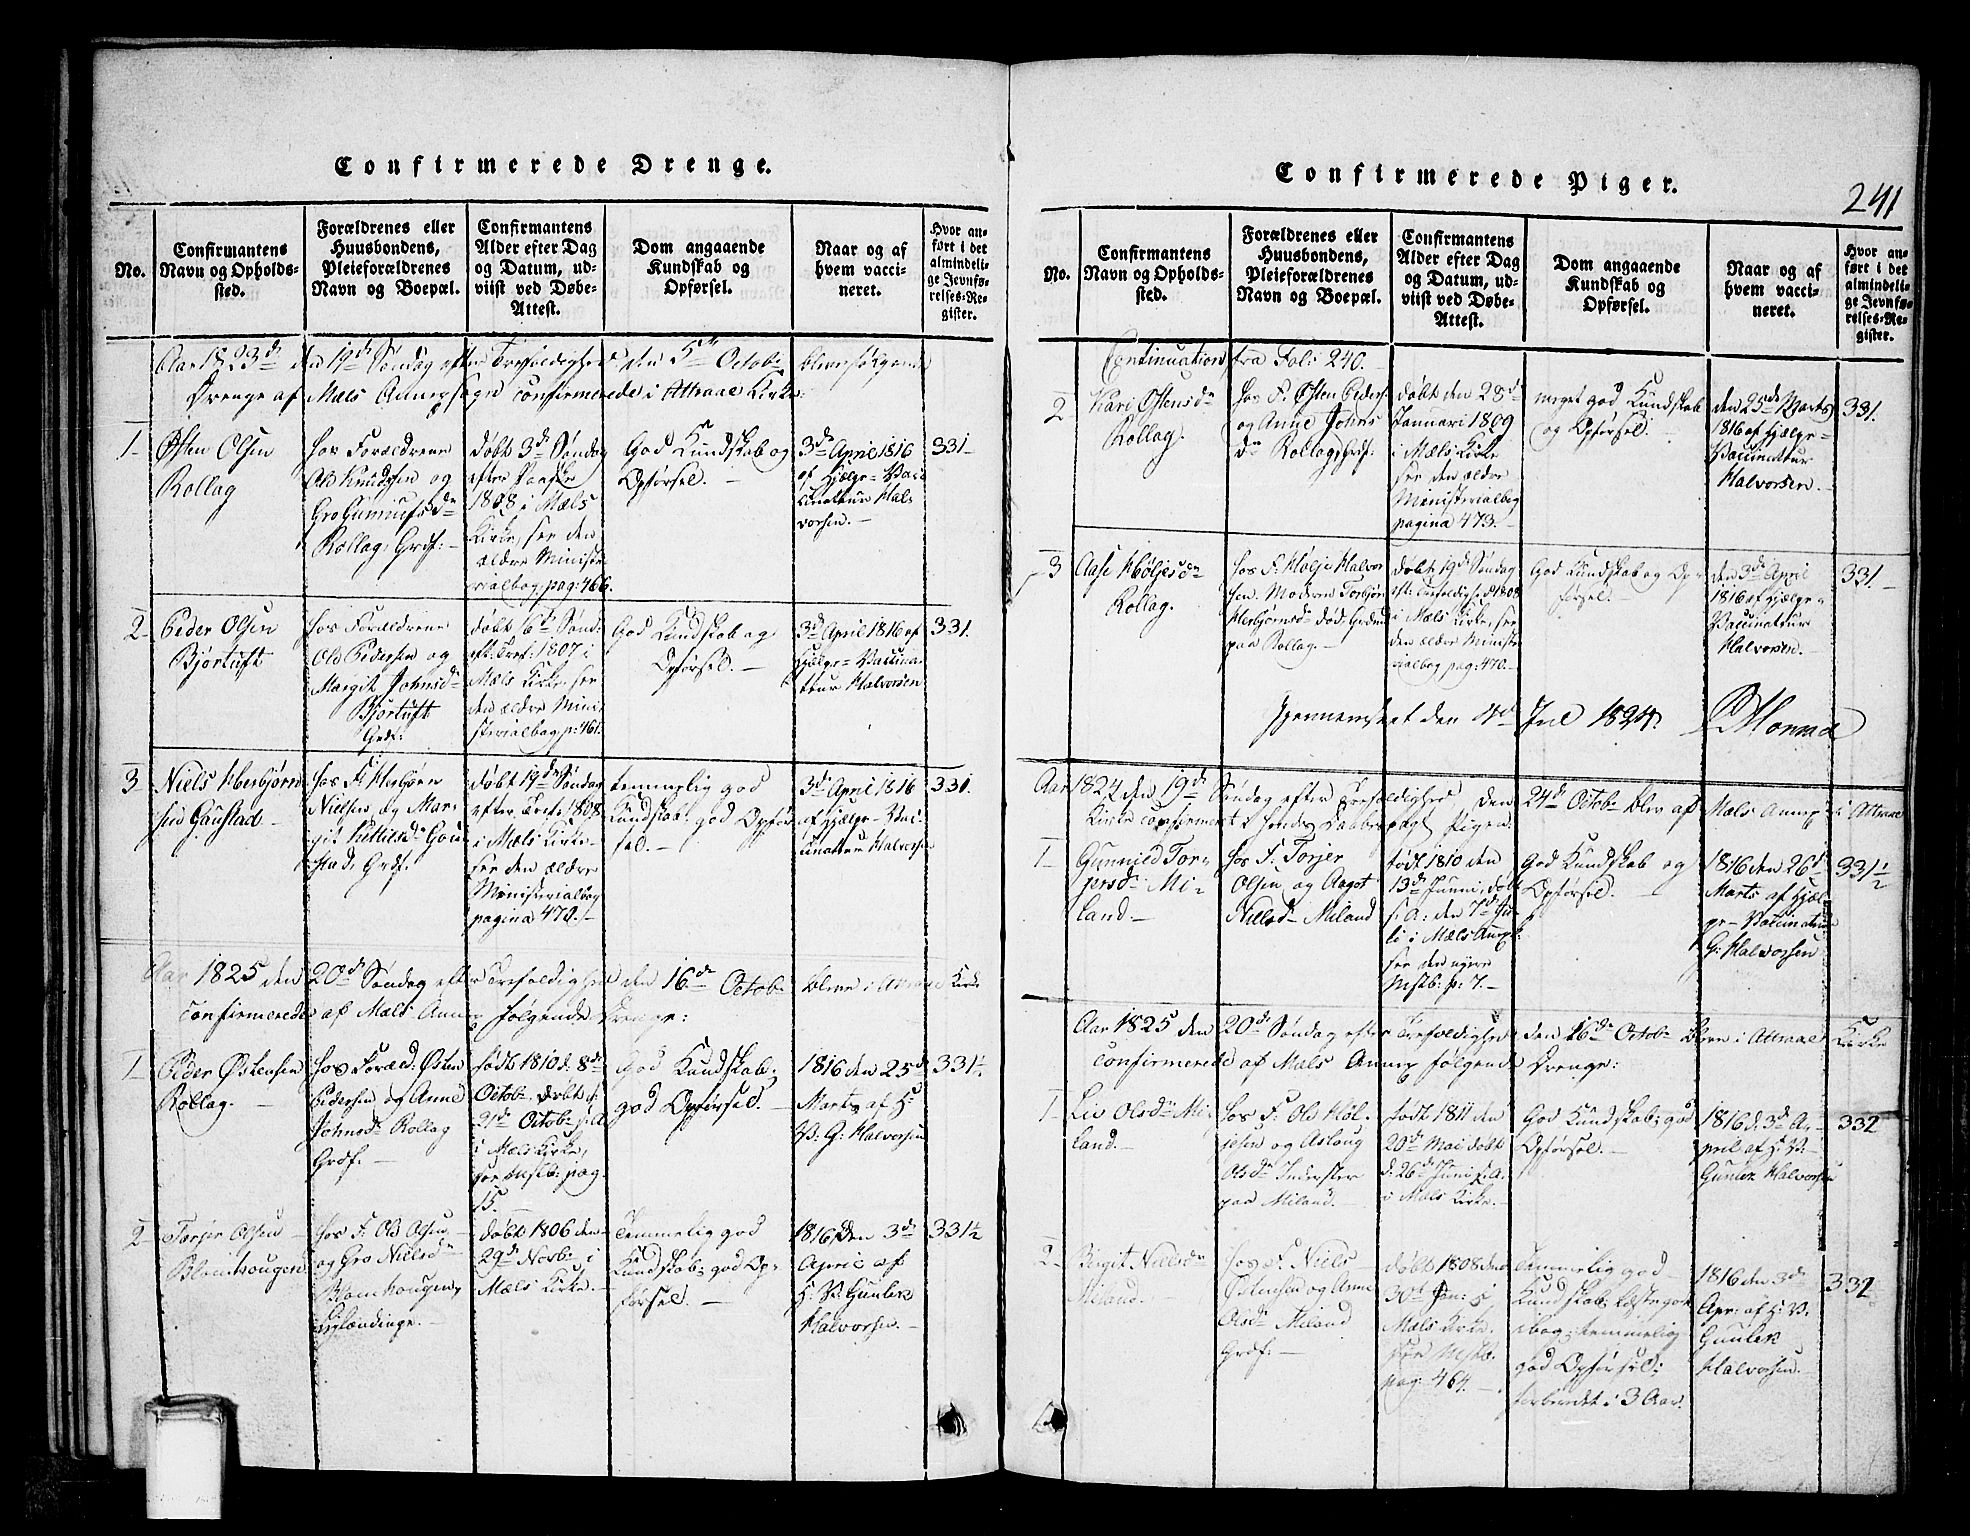 Confirmerede Drenge.
No.
Confirmantens
Navn og Opholds-
sted.
Forældrenes eller
Huusbondens,
Pleieforældrenes
Navn og Boepæl.
Confirmantens
Alder efter Dag
og Datum, ud-
viist ved Døbe-
Attest.
Dom angaaende
Kundskab og
Opførsel.
Naar og af
hvem vacci-
neret.
Hvor an-
ført i det
almindeli-
ge Jevnfø-
relses-Re-
gister.
Aar 1823 den 19de Søndag efter Trefoldighed den 5te Octobr bleve følgende
Drenge af Mæls Annexsogn confirmerede i Attraae Kirke:
1
Østen Olsen
Rollag
hos Forældrene
Ole Knudsen og
Gro Gunnufsdr
Rollag, Grdf:
døbt 3de Søndag
efter Paaske
1808 i Mæls
Kirke, see den
ældre Ministe-
rialbog, pag: 466.
God Kundskab og
Opførsel.
3de April 1816
af Hjælpe-Vac-
cinateur Hal-
vorsen.
331
2
Peder Olsen
Bjørtuft
hos Forældrene
Ole Pedersen og
Margit Johnsdr
Bjørtuft
Grdf:
døbt 6te Sønd:
eft: Tref: 1807 i
Mæls Kirke, see
den ældre Mini-
sterialbog, p: 461.
God Kundskab og
Opførsel.
3de April 1816 af
Hjælpe-Vaccina-
teur Halvorsen
331.
3
Niels Herbjørn-
sen Gaustad
hos F: Herbjørn
Nielsen og Mar-
git Kittilsdr Gau-
stad, Grdf.
døbt 19de Søndag
efter Tref: 1808
i Mæls Kirke
see den ældre
Ministerialbog
pagina 470.
temmelig god
Kundskab, god Opfør-
sel.
3de April 1816
af Hjælpe-Vac-
cinateur Halvorsen
331.
Aar 1825 den 20de Søndag efter Trefoldighed den 16de Octobr bleve i Attraae Kirke
confirmerede af Mæls Annex følgende Drenge:
1
Peder Østensen
Rollag.
hos Foræld: Østen
Pedersen og Anne
Johnsdr Rollag
Grdf.
født 1810 d. 8de
Octobr døbt d.
21de Octobr s: A
i Mæls Kirke,
see Mstb: pag.
15.
God Kundskab,
god Opførsel.
1816 den 25de
Marts af H:
V: G: Halvorsen
331½
2
Torjer Olsen
Blomhougen
hos F: Ole Olsen
og Gro Nielsdr
Blomhougen,
døbt 1806 den
29de Novbr i
Mæls Kirke.
Temmelig god
Kundskab; god Op-
førsel.
1816 den 3de
April af
H: V: Gunlek
Halvorsen.
331½
Confirmerede Piger.
241
No.
Confirmantens
Navn og Opholds-
sted.
Forældrenes eller
Huusbondens,
Pleieforældrenes
Navn og Boepæl.
Confirmantens
Alder efter Dag
og Datum, ud-
viist ved Døbe-
Attest.
Dom angaaende
Kundskab og
Opførsel.
Naar og af
hvem vacci-
neret.
Hvor an-
ført i det
almindeli-
ge Jevnfø-
relses-Re-
gister.
Continuation fra Fol: 240.
2
Kari Østensdr
Rollag.
hos F. Østen Peders:
og Anne Johns
dr Rollag, Grdf:
døbt den 28de
Januari 1809
i Mæls Kirke
see den ældre
Ministerialbog
pagina 473.
meget god Kundskab
og Opførsel.
den 25de Marts
1816 af Hjælpe-
Vaccinateur
Halvorsen.
331.
3
Aase Høljesdr
Rollag.
hos F. Hølje Halvor-
sen. Moderen Torbjør
Herbjørnsdr død;
paa Rollag.
døbt 19de Søndag
eft: Trefoldighed 1808
i Mæls Kirke, see
den ældre Ministe-
rialbog pag: 470.
God Kundskab og Op-
førsel.
den 3de April
1816 af Hjælpe-
Vaccinateur
Halvorsen.
331.
Gjennemseet den 4de Jul 1824. Monrad
Aar 1824 den 19de Søndag efter Trefoldighed, den 24de Octobr blev af Mæls Annex i Attraae
Kirke confirmeret Pigen:
1
Gunnild Tor-
jersdr Mi-
land.
hos F. Torjer
Olsen og Aagot
Nielsdr Miland
født 1810 den
13de Junii, døbt
s: A: den 7de Ju-
li i Mæls Annex
see den nyere
Mstb: p: 7.
God Kundskab og
Opførsel.
1816 den 26de
Marts af Hjæl-
pe-Vaccinateur
G: Halvorsen
331½
Aar 1825 den 20de Søndag efter Trefoldighed den 16de Octobr bleve i Attraae Kirke
confirmerede af Mæls Annex følgende Drenge:
1
Liv Olsdr Mi-
land.
hos F. Ole Høl-
jesen og Aslaug
Olsdr Inderster
paa Miland.
født 1811 den
20de Mai døbt
d: 26de Juni s: A.
i Mæls Kirke.
God Kundskab; god
Opførsel.
1816 d. 3de A-
pril af H: V:
Gunlek Halvorsen
332
2
Birgit Nielsdr
Miland.
hos F. Niels
Østensen og Anne
Olsdr Miland
Grdf:
døbt 1808 den
30te Jan: i
Mæls Kirke.
see Mstb.
pag: 464.
Temmelig god
Kundskab;
temmelig
god Opførsel;
forberedt i 3 Aar.
1816 den 3de
Apr: af H: V:
Gunlek
Halvorsen.
332